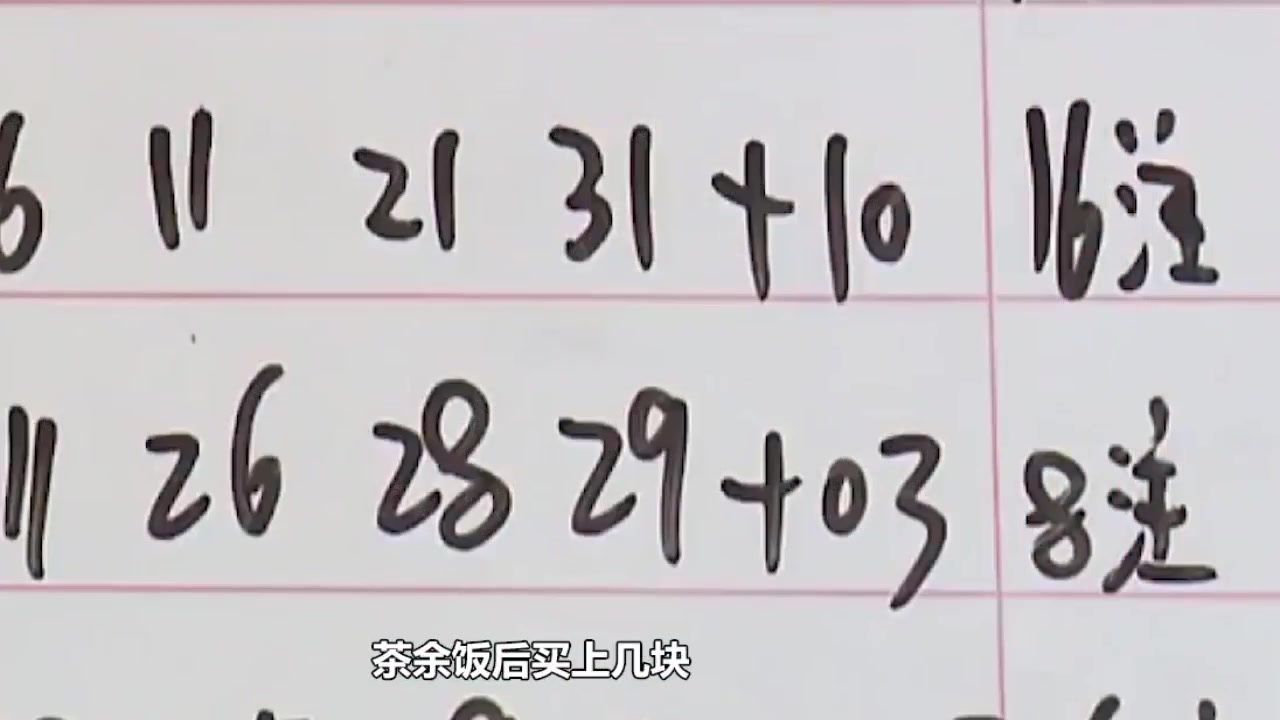 6 11 21 31+10 16注
11 26 28 29+03 8注
茶余饭后买上几块